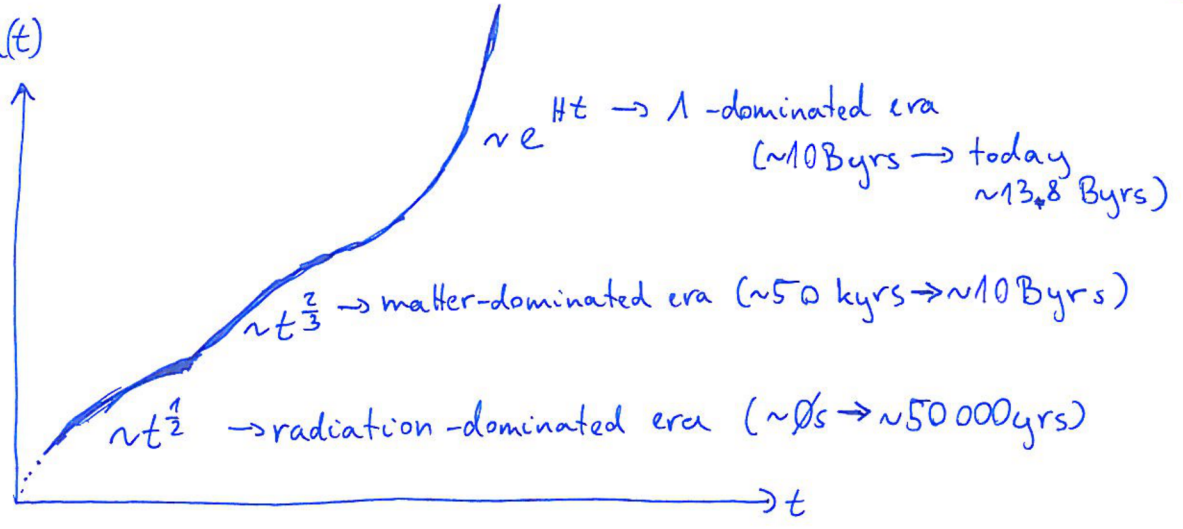 (t)
~e^{Ht} → Λ-dominated era
(~10Byrs → today
~13.8 Byrs)
~t^{2/3} → matter-dominated era (~50 kyrs→~10Byrs)
~t^{1/2} → radiation-dominated era (~0s→~50000yrs)
t